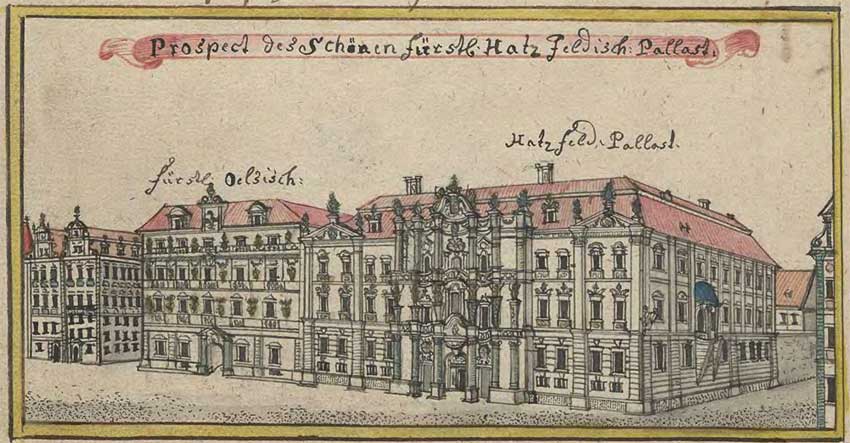 Prospect des Schönen fürstl. Hatzfeldisch: Pallast.
Hatzfeld. Pallast.
fürstl. Oelsisch: